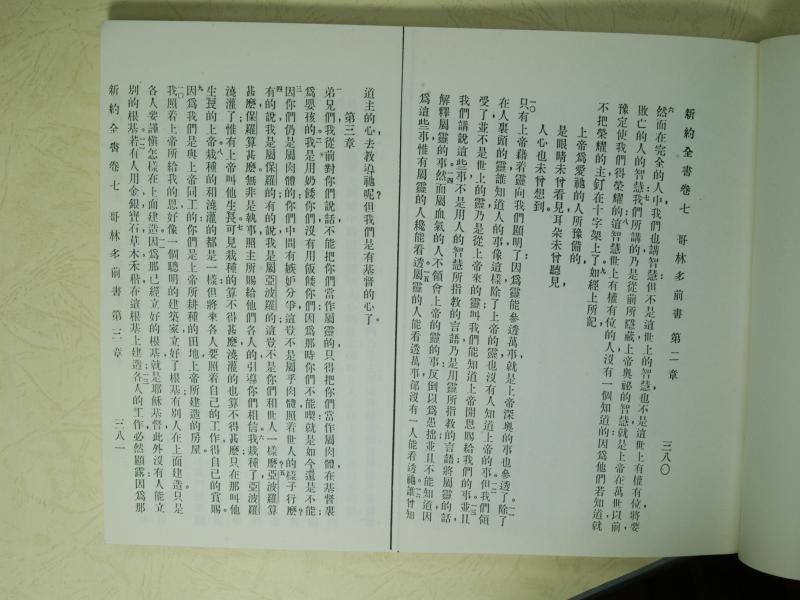 新約全書卷七　哥林多前書　第二章　三八〇
六然而在完全的人中我們也講智慧但不是這世上的智慧也不是這世上有權有位將要
敗亡的人的智慧七我們所講的乃是從前所隱藏上帝奧祕的智慧就是上帝在萬世以前
豫定使我們得榮耀的八這智慧世上有權有位的人沒有一個知道的因爲他們若知道就
不把榮耀的主釘在十字架上了九如經上所記
上帝爲愛祂的人所豫備的
是眼睛未曾看見耳朵未曾聽見
人心也未曾想到
一〇只有上帝藉着靈向我們顯明了因爲靈能參透萬事就是上帝深奧的事也參透了一一除了
在人裏頭的靈誰知道人的事像這樣除了上帝的靈也沒有人知道上帝的事一二但我們領
受了並不是世上的靈乃是從上帝來的靈叫我們能知道上帝開恩賜給我們的事一三並且
我們講說這些事不是用人的智慧所指教的言語乃是用靈所指教的言語將屬靈的話
解釋屬靈的事一四然而屬血氣的人不領會上帝的靈的事反倒以爲愚拙並且不能知道因
爲這些事惟有屬靈的人纔能看透一五屬靈的人能看透萬事卻沒有一人能看透祂一六誰曾知
道主的心去教導祂呢？但我們是有基督的心了。
第三章
一弟兄們我從前對你們說話不能把你們當作屬靈的只得把你們當作屬肉體在基督裏
爲嬰孩的二我是用奶餧你們沒有用飯餧你們因爲那時你們不能喫就是如今還是不能？
三因你們仍是屬肉體的你們中間有嫉妒分爭這豈不是屬乎肉體照着世人的樣子行麼？
四有的說我是屬保羅的有的說我是屬亞波羅的這豈不是你們和世人一樣麼？五亞波羅算
甚麼保羅算甚麼無非是執事照主所賜給他們各人的引導你們相信六我栽種了亞波羅
澆灌了惟有上帝叫他生長七可見栽種的算不得甚麼澆灌的也算不得甚麼只在那叫他
生長的上帝八栽種的和澆灌的都是一樣但將來各人要照着自己的工作得自己的賞賜。
九因爲我們是與上帝同工的你們是上帝所耕種的田地上帝所建造的房屋。
一〇我照着上帝所給我的恩好像一個聰明的建築家立好了根基有別人在上面建造只是
各人要謹愼怎樣在上面建造一一因爲那已經立好的根基就是耶穌基督此外沒有人能立
別的根基一二若有人用金銀寶石草木禾稭在這根基上建造一三各人的工作必然顯露因爲那
新約全書卷七　哥林多前書　第三章　三八一